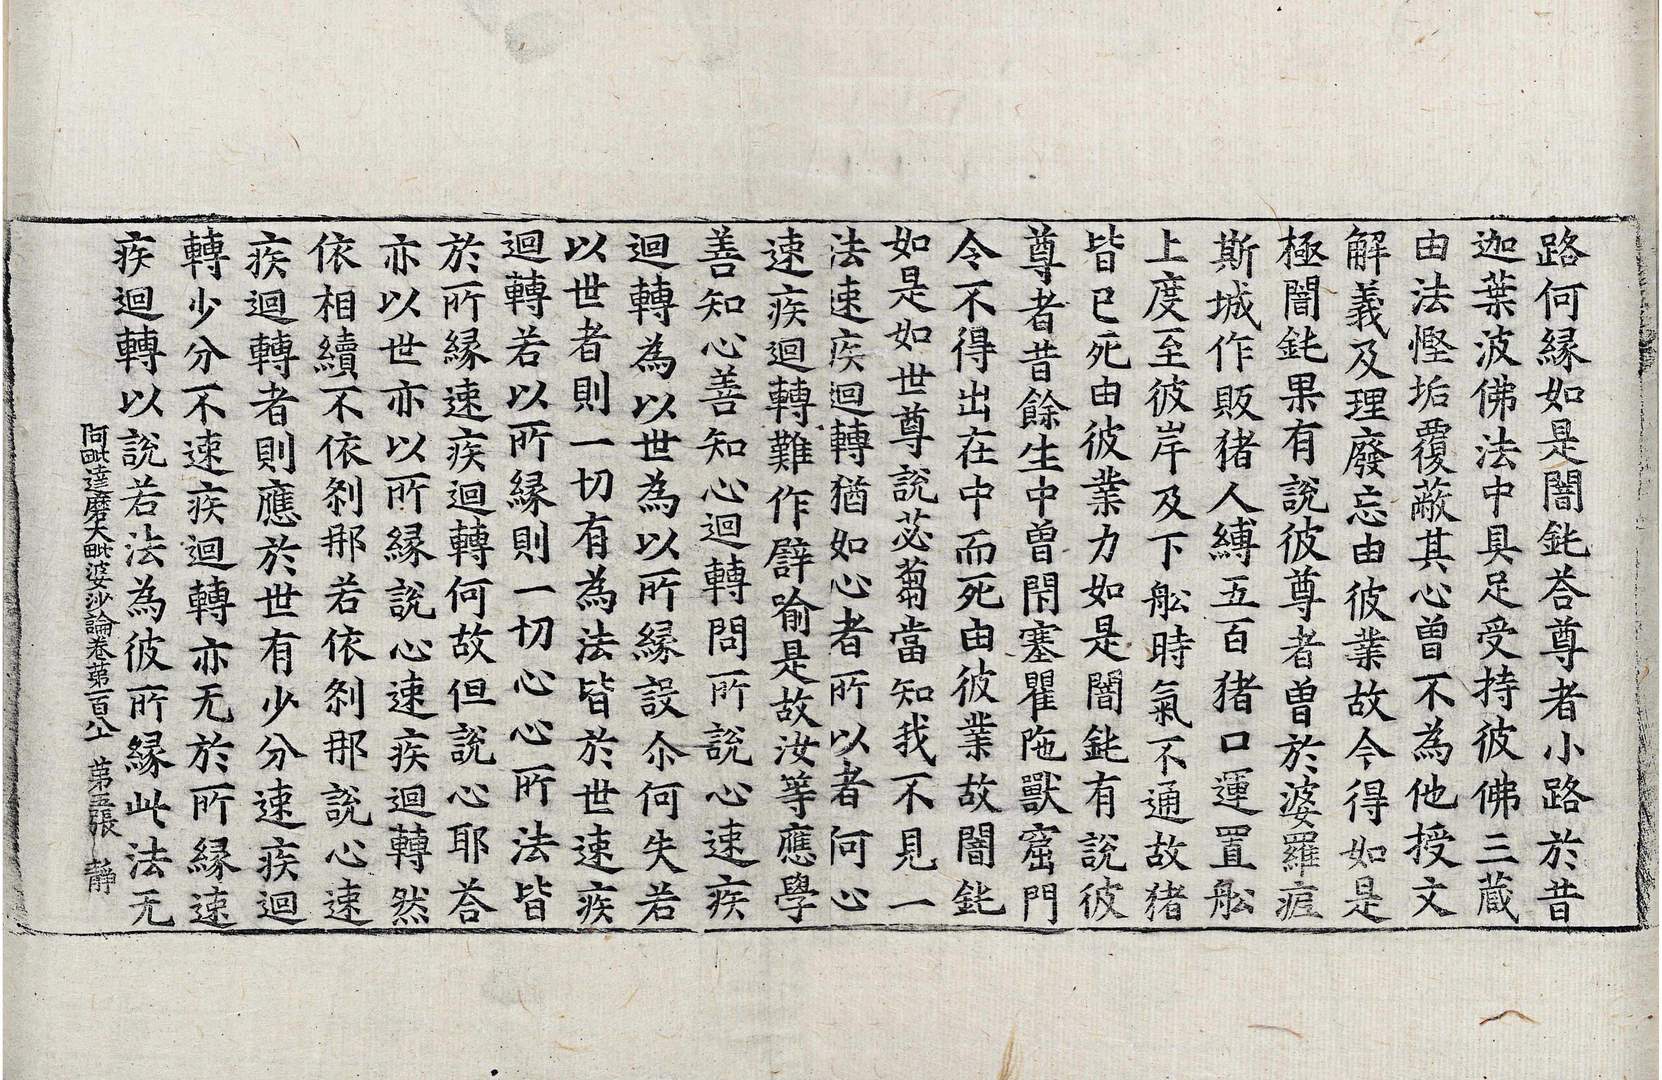 路何縁如是闇鈍荅尊者小路於昔
迦葉波佛法中具足受持彼佛三藏
由法慳垢覆蔽其心曾不為他授文
解義及理廢忘由彼業故今得如是
極闇鈍果有說彼尊者曾於婆羅痆
斯城作販猪人縛五百猪口運置舩
上度至彼岸及下舩時氣不通故猪
皆已死由彼業力如是闇鈍有說彼
尊者昔餘生中曾閇塞瞿陁獸窟門
令不得出在中而死由彼業故闇鈍
如是如世尊說苾蒭當知我不見一
法速疾迴轉猶如心者所以者何心
速疾迴轉難作譬喻是故汝等應學
善知心善知心迴轉問所說心速疾
迴轉為以世為以所縁設尒何失若
以世者則一切有為法皆於世速疾
迴轉若以所縁則一切心心所法皆
於所縁速疾迴轉何故但說心耶荅
亦以世亦以所縁說心速疾迴轉然
依相續不依剎那若依剎那說心速
疾迴轉者則應於世有少分速疾迴
轉少分不速疾迴轉亦无於所縁速
疾迴轉以說若法為彼所縁此法无
阿毗達磨大毗婆沙論卷第一百八十 第五張 靜